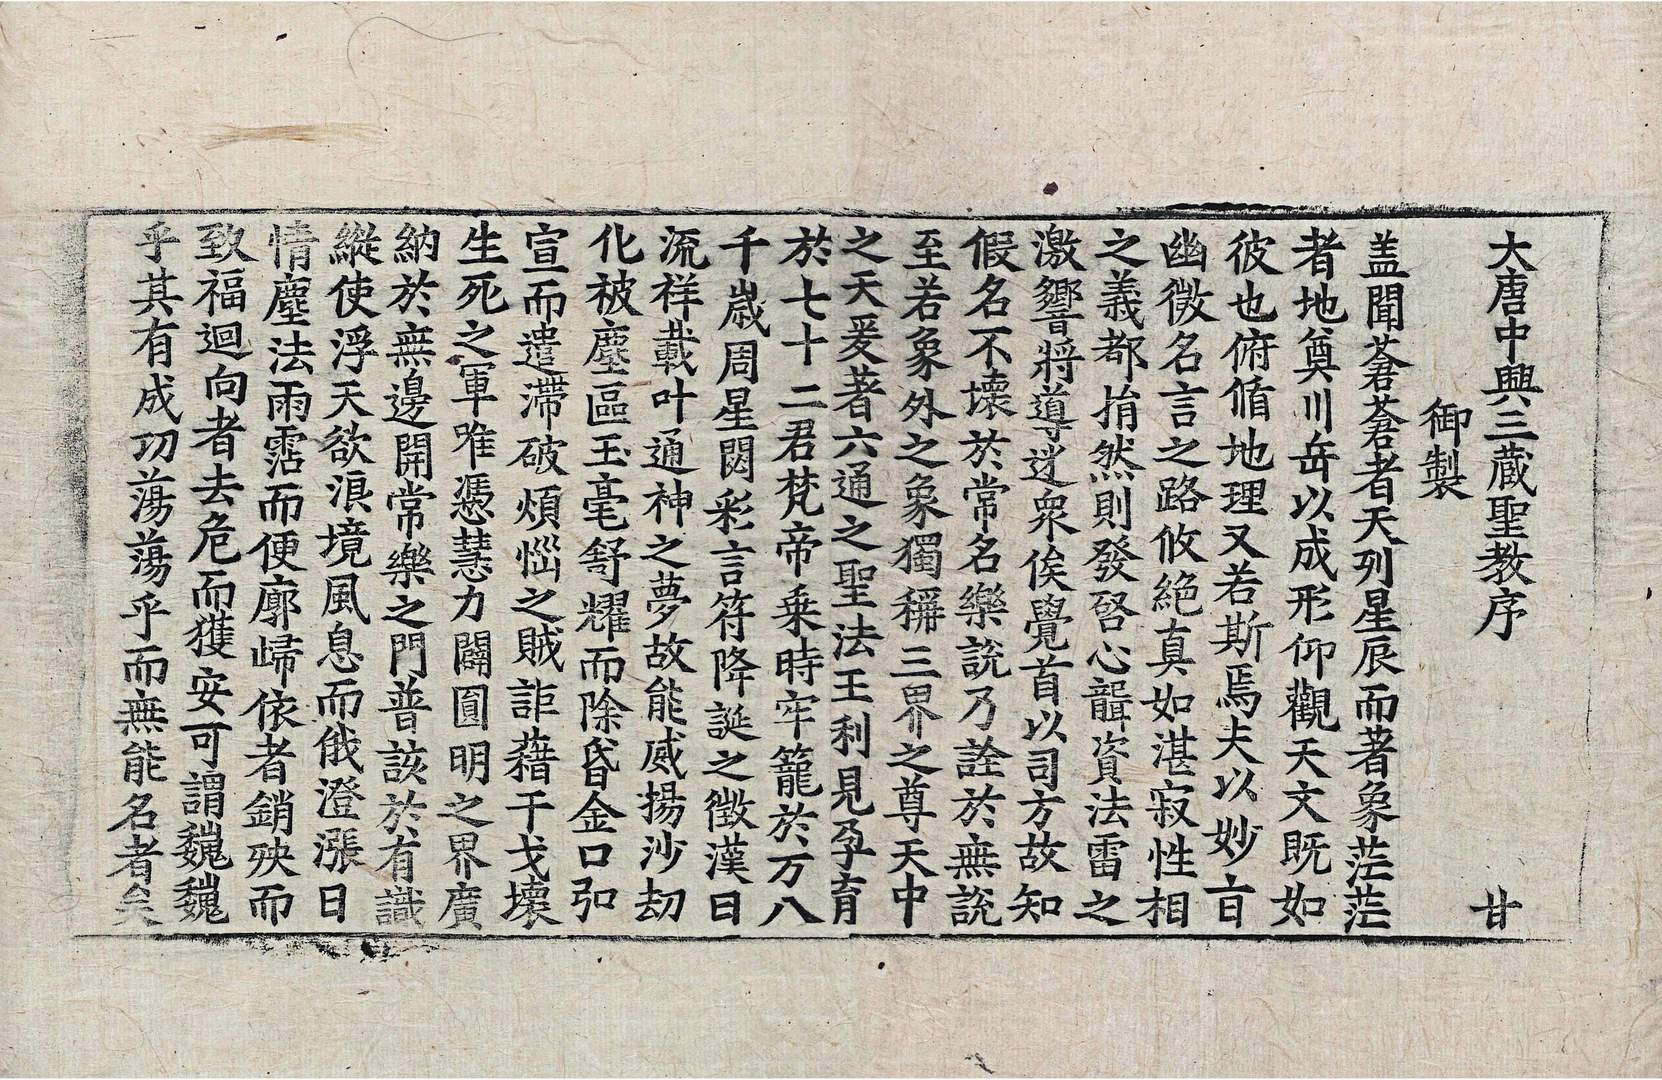 大唐中興三蔵聖教序 甘
御製
盖聞蒼蒼者天列星辰而著象茫茫
者地奠川岳以成形仰觀天文既如
彼也俯循地理又若斯焉夫以妙旨
幽微名言之路攸絶真如湛寂性相
之義都捐然則發啓心聾資法雷之
激響將導迷衆俟覺首以司方故知
假名不壞於常名樂說乃詮於無說
至若象外之象獨稱三界之尊天中
之天爰著六通之聖法王利見孕育
於七十二君梵帝乗時牢籠於万八
千歲周星閟彩言符降誕之徵漢日
流祥載叶通神之夢故能威揚沙劫
化被塵區玉毫舒耀而除昏金口弘
宣而遣滯破煩惱之賊詎藉干戈壞
生死之軍唯憑慧力闢圓明之界廣
納於無邊開常樂之門普該於有識
縱使浮天欲浪境風息而俄澄漲日
情塵法雨霑而便廓歸依者銷殃而
致福迴向者去危而獲安可謂巍巍
乎其有成功蕩蕩乎而無能名者矣